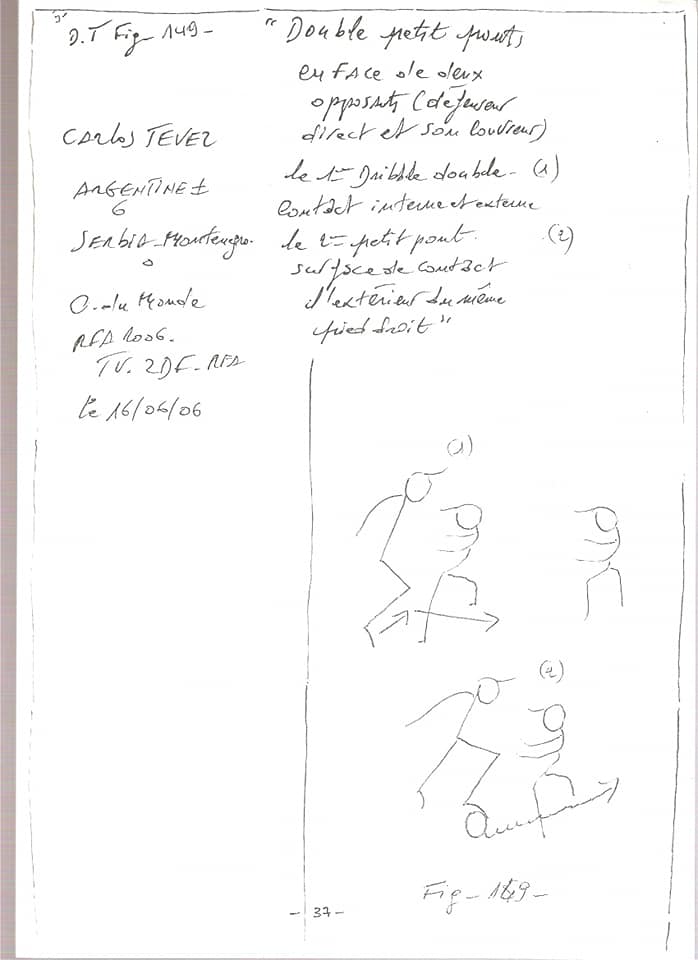 "3"
D.T Fig_ 149-
CArlos TEVEZ
ARGENTINE ±
6
SERbiA_Montenegro.
0
C. du Monde
RFA 2006.
TV. ZDF_RFA
le 16/06/06
"Double petit ponts
en FAce de deux
opposants (défenseur
direct et son couvreur)
le 1er Dribble double - (1)
Contact interne et externe
le 2ème petit pont. (2)
surface de contact
l'extérieur du même
pied droit"
(1)
(2)
Fig_ 149-
- 37 -